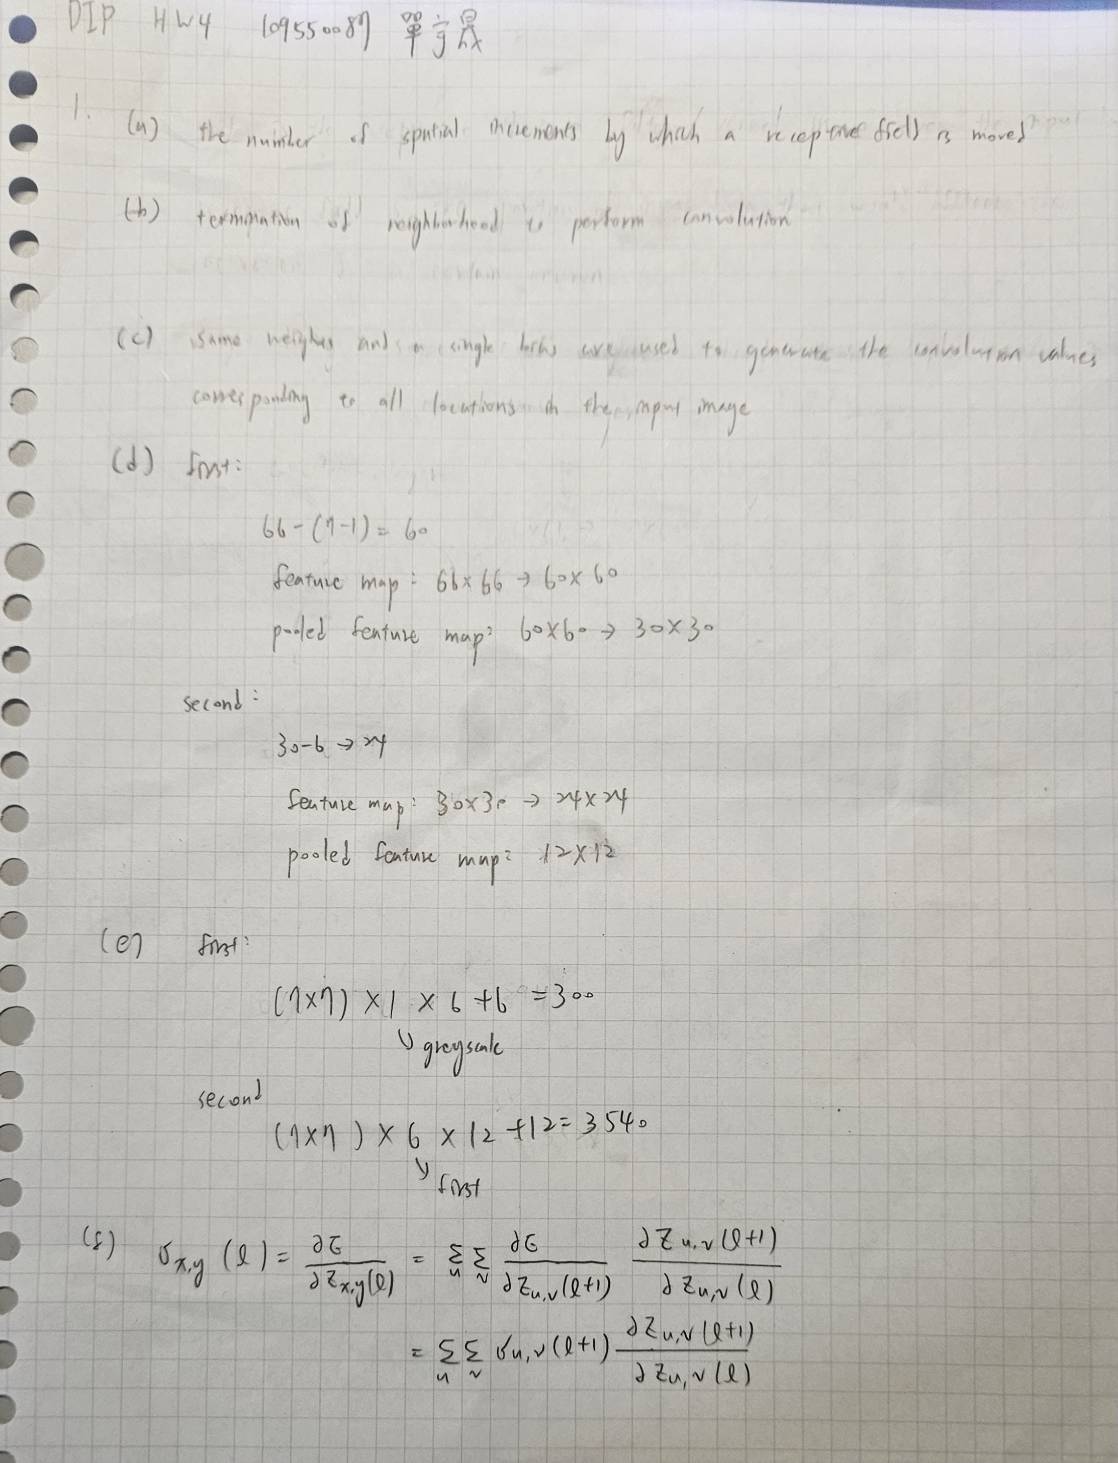 DIP HW4 109550087 單宇晟
1. (a) the number of spatial increments by which a receptive field is moved
(b) termination of neighborhood to perform convolution
(c) same weights and a single bias are used to generate the convolution values
corresponding to all locations in the input image
(d) first:
66-(7-1) = 60
feature map: 66×66 → 60×60
pooled feature map: 60×60 → 30×30
second:
30-6 → 24
feature map: 30×30 → 24×24
pooled feature map: 12×12
(e) first:
(7×7) × 1 × 6 + 6 = 300
↓ greyscale
second
(7×7) × 6 × 12 + 12 = 3540
↓ first
(f) δx,y (l) = ∂E / ∂Zx,y(l) = Σu Σv ∂E / ∂Zu,v(l+1) ∂Zu,v(l+1) / ∂Zu,v(l)
= Σu Σv δu,v(l+1) ∂Zu,v(l+1) / ∂Zu,v(l)